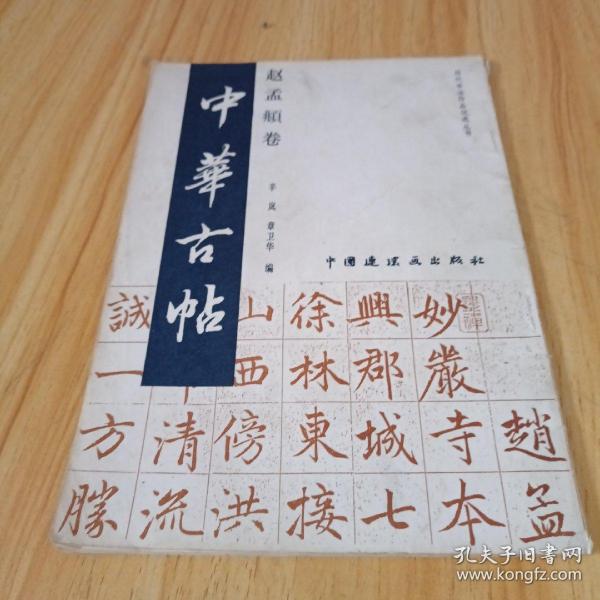 中華古帖
赵孟頫卷
辛岚 章卫华 编
中國連環画出版社
趙孟
妙嚴寺本
興郡城七
徐林東接
山西傍洪
清流
誠一方勝
孔夫子旧书网
www.kongfz.com